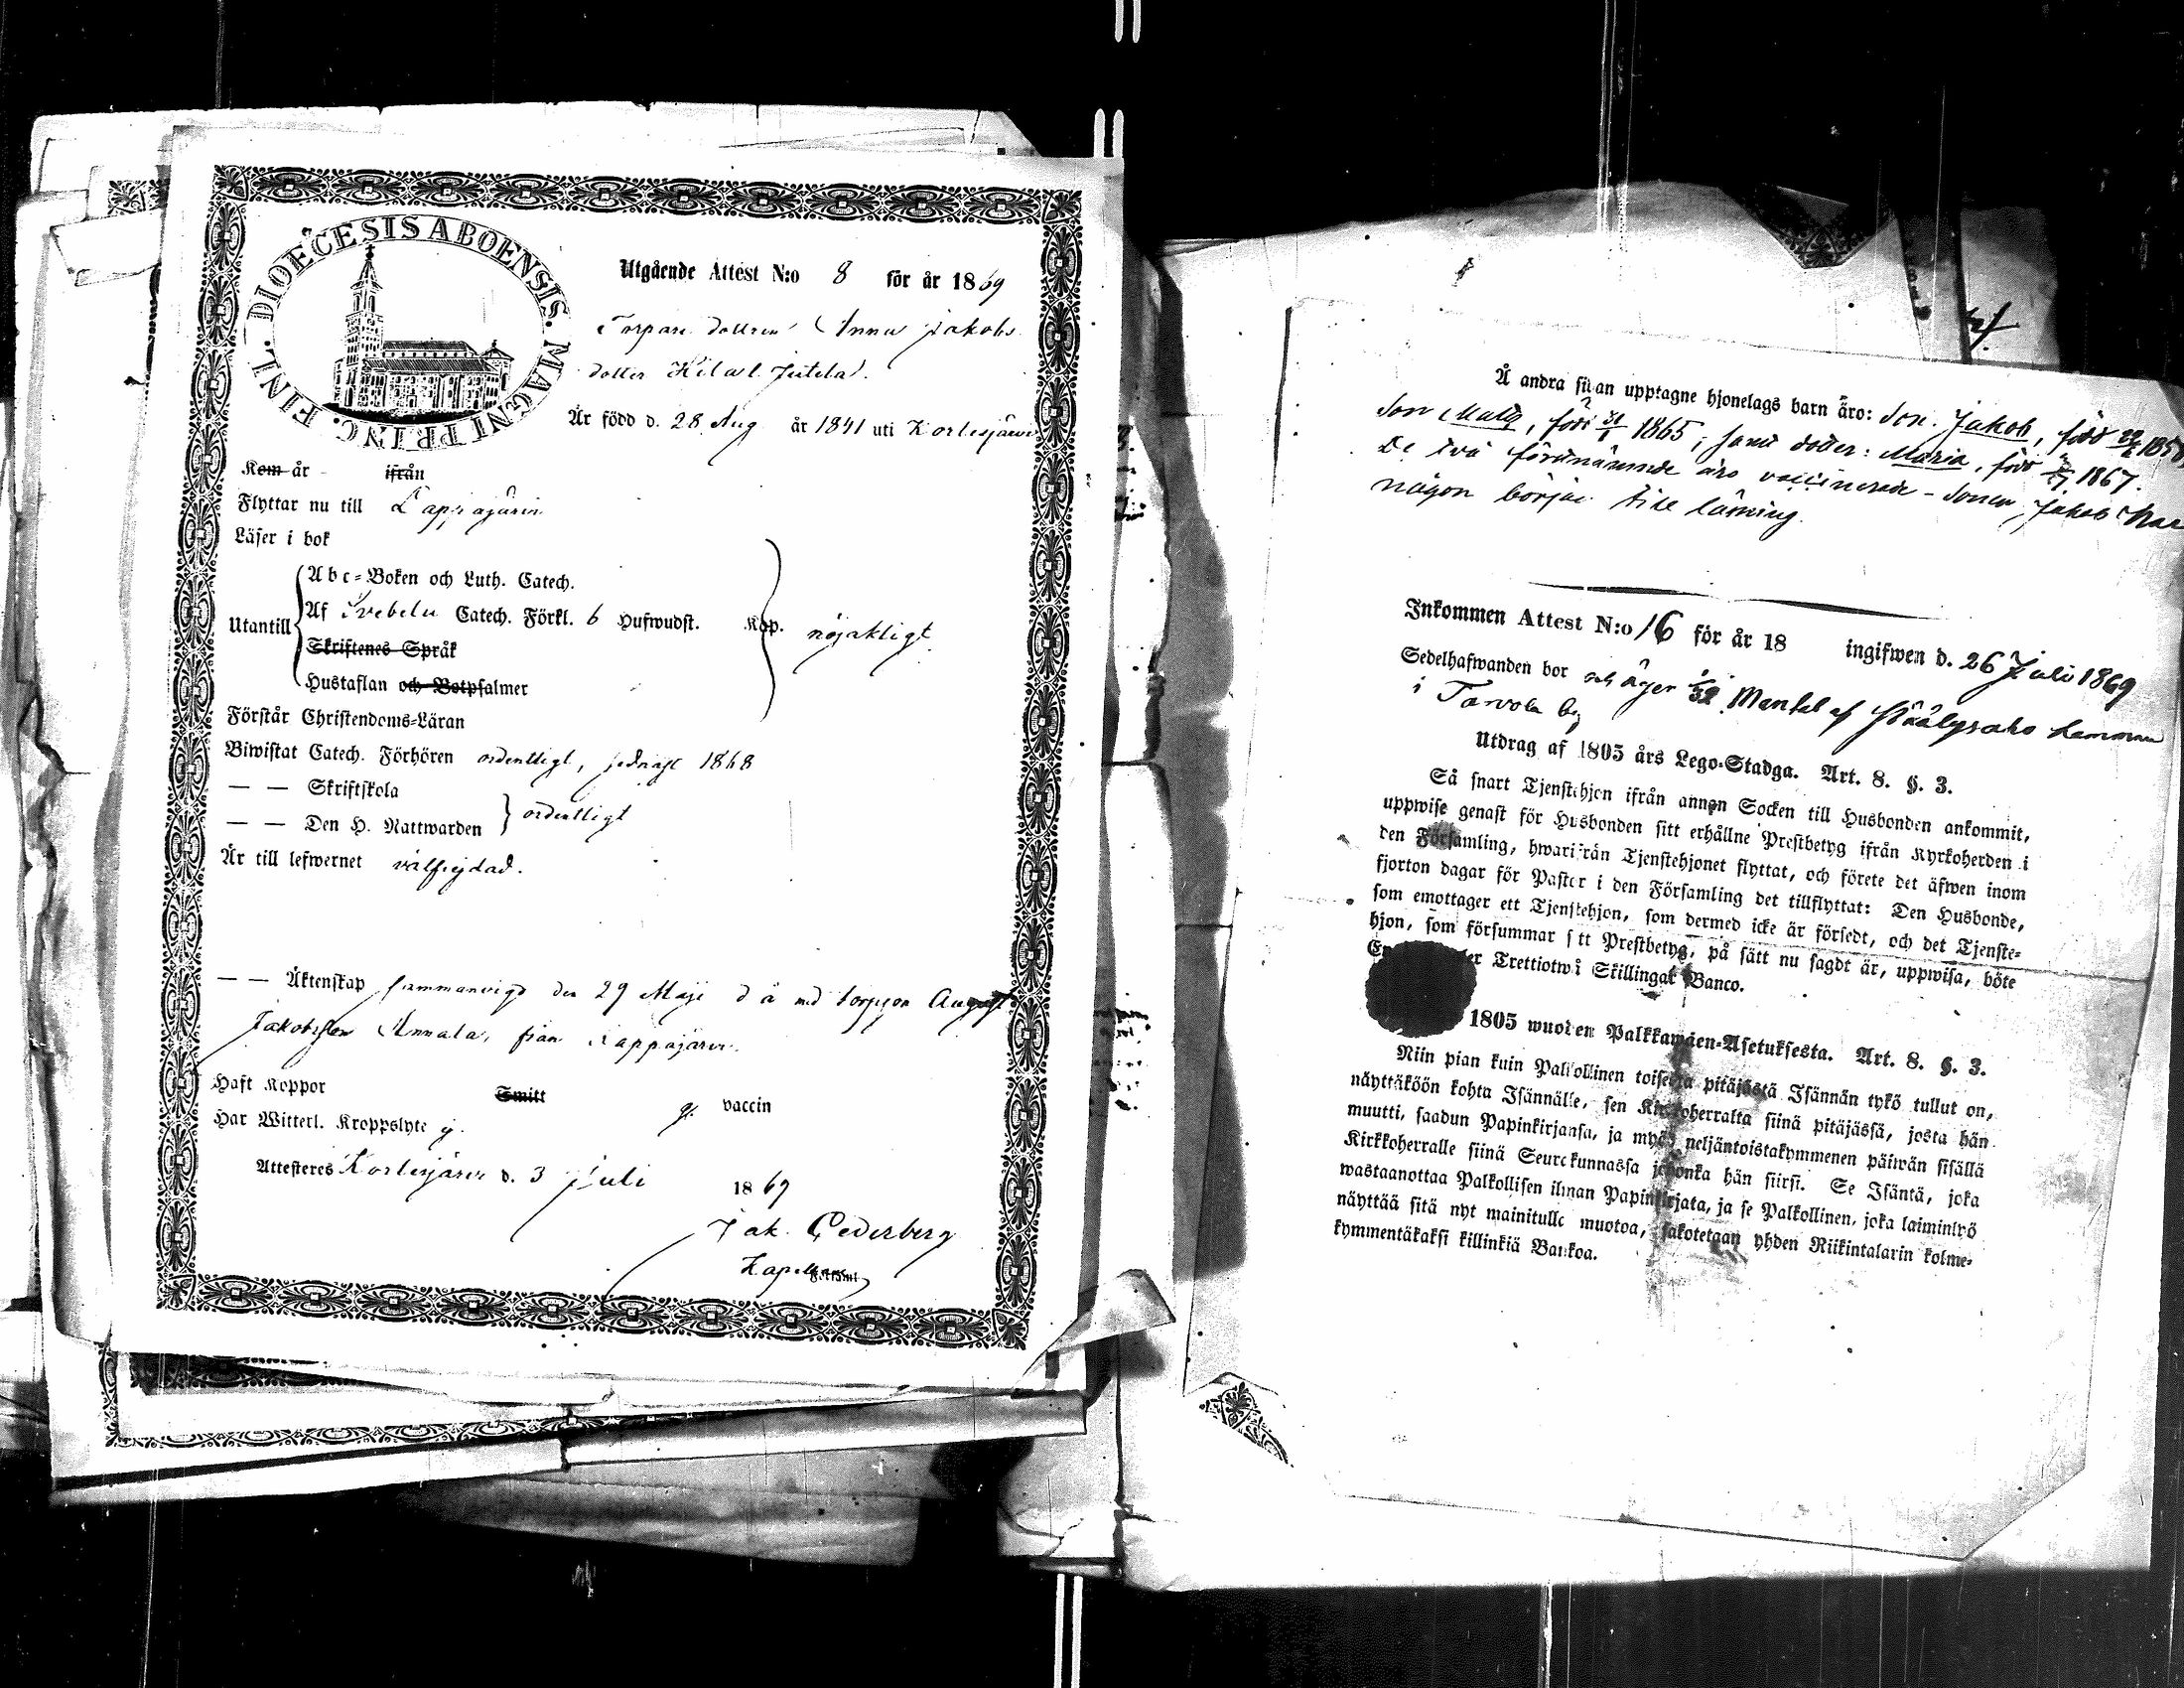 DIOECESIS ABOENSIS. MAGNI PRINC. FINL.
Utgående Attest N:o 8 för år 1869
Torpare dottren Anna Jakobs
dotter
Är född d. 28 Aug år 1841 uti Kortesjärvi
Kom år ifrån
Flyttar nu till Lappajärvi
Läser i bok
Abc-Boken och Luth. Catech.
Utantill Af Svebelii Catech. Förkl. 6 Hufwudst. Kap. nöjakligt.
Skriftenes Språk
Hustaflan och Botpsalmer
Förstår Christendoms-Läran
Biwistat Catech. Förhören ordentligt, sednast 1868
— — Skriftskola
— — Den H. Nattwarden ordentligt
Är till lefwernet välfrejdad.
— — Äktenskap sammanvigd den 29 Maji d å med torpson August
Jakobsson Annala, från Lappajärvi.
Haft Koppor Smitt vaccin
Har Witterl. Kroppslyte ej.
Attesteras Kortesjärvi d. 3 Juli 1869
Jak. Cederberg
Å andra sidan upptagne hjonelags barn äro: Son. Jakob, född
Son Matts, född 1865; samt dotter: Maria, född 1867.
De två förstnämnde äro vaccinerade - Sonen Jakob har
någon början till läsning.
Inkommen Attest N:o 16 för år 18 ingifwen d. 26 Juli 1869
Sedelhafwanden bor och äger 1/32 Mantal af hemman
i Tarvola by
Utdrag af 1805 års Lego-Stadga. Art. 8. §. 3.
Så snart Tjenstehjon ifrån annan Socken till Husbonden ankommit,
uppwise genast för Husbonden sitt erhållne Prestbetyg ifrån Kyrkoherden i
den Församling, hwarifrån Tjenstehjonet flyttat, och förete det äfwen inom
fjorton dagar för Pastor i den Församling det tillflyttat: Den Husbonde,
som emottager ett Tjenstehjon, som dermed icke är försedt, och det Tjenste-
hjon, som försummar sitt Prestbetyg, på sätt nu sagdt är, uppwisa, böte
Trettiotwå Skillingar Banco.
1805 wuoden Palkkawäen-Asetuksesta. Art. 8. §. 3.
Niin pian kuin Palkollinen toisesta pitäjästä Isännän tykö tullut on,
näyttäköön kohta Isännälle, sen Kirkkoherralta siinä pitäjässä, josta hän
muutti, saadun Papinkirjansa, ja myös neljäntoistakymmenen päiwän sisällä
Kirkkoherralle siinä Seurakunnassa jahonka hän siirsi. Se Isäntä, joka
wastaanottaa Palkollisen ilman Papinkirjata, ja se Palkollinen, joka laiminlyö
näyttää sitä nyt mainitulle muotoa, sakotetaan yhden Riikintalarin kolme-
kymmentäkaksi killinkiä Bankoa.